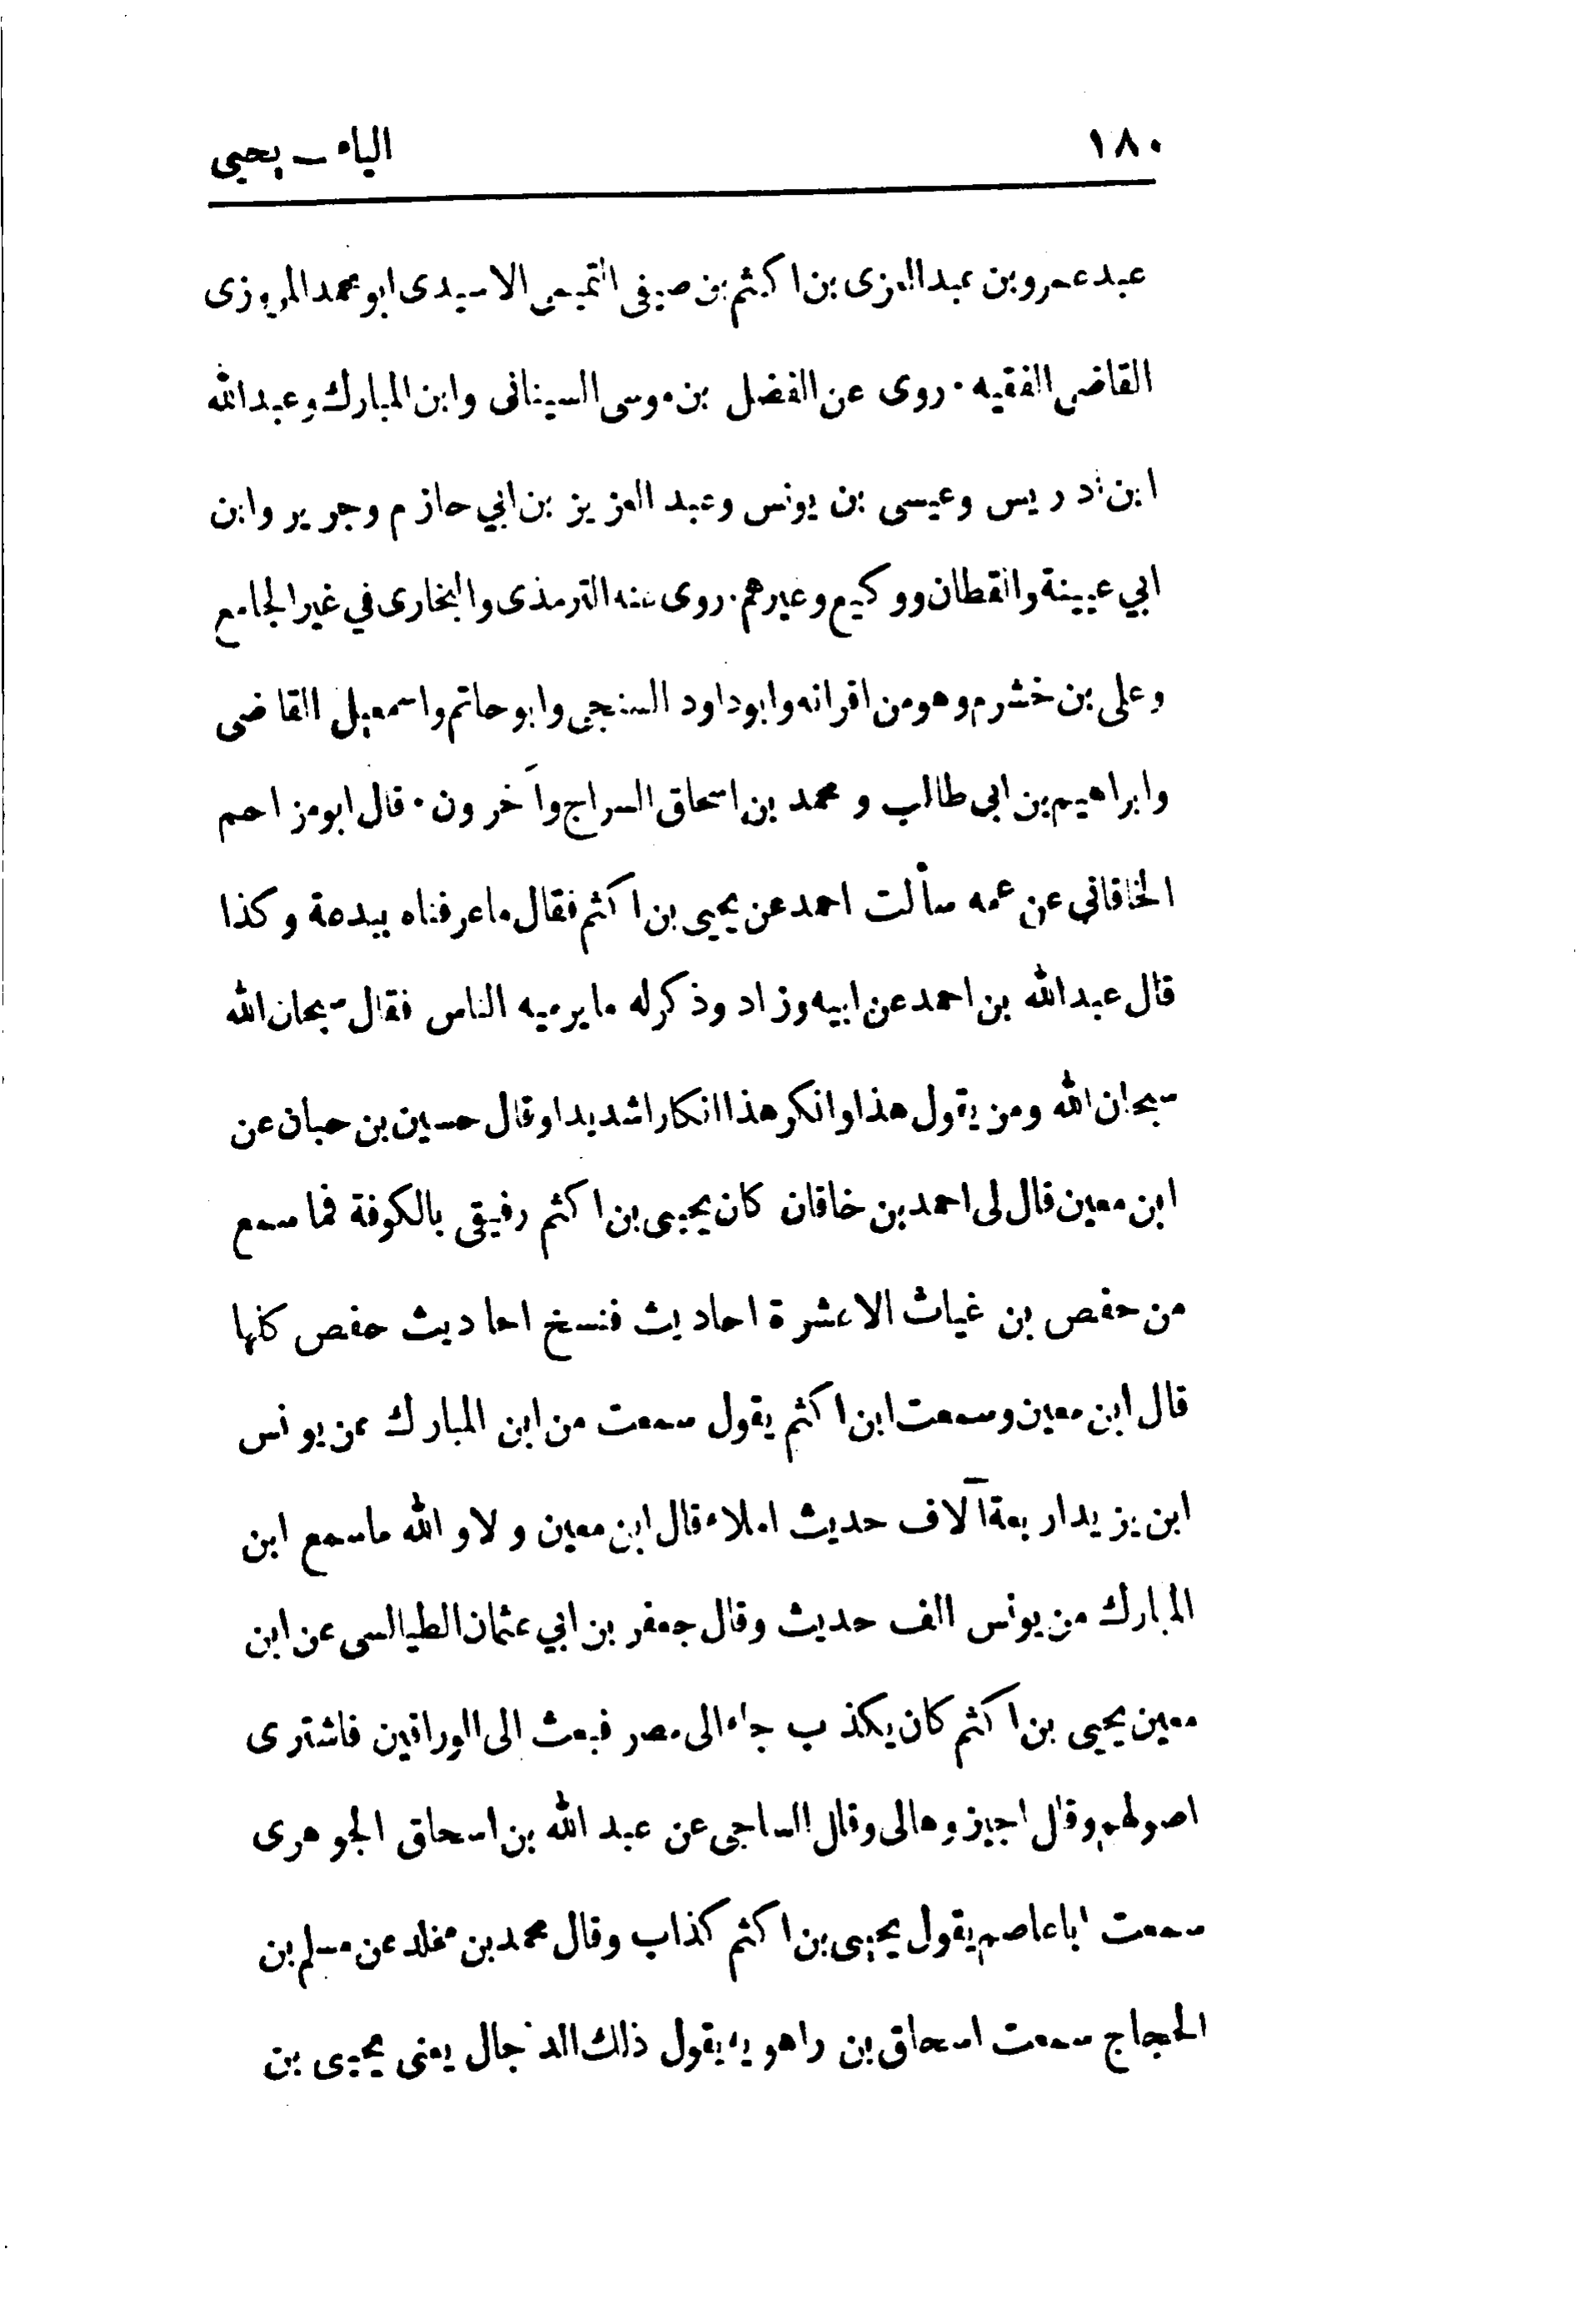 ١٨٠ الياء ــ يحيى
عبد عمرو بن عبد العزى بن اكثم بن صيفى التميمى الاسيدى ابو محمد المروزى
القاضى الفقيه. روى عن الفضل بن موسى السينانى وابن المبارك وعبد الله
ابن ادريس وعيسى بن يونس وعبد العزيز بن ابي حازم وجرير وابن
ابي عيينة والقطان ووكيع وغيرهم. روى عنه الترمذى والبخارى في غير الجامع
وعلى بن خشرم وهو من اقرانه وابو داود السنجى وابو حاتم واسمعيل القاضى
وابراهيم بن ابى طالب و محمد بن اسحاق السراج وآخرون. قال ابو مزاحم
الخاقاني عن عمه سألت احمد عن يحيى بن اكثم فقال ما عرفناه ببدعة وكذا
قال عبد الله بن احمد عن ابيه وزاد وذكر له ما يرميه الناس فقال سبحان الله
سبحان الله ومن يقول هذا وانكر هذا انكارا شديدا وقال حسين بن حبان عن
ابن معين قال لى احمد بن خاقان كان يحيى بن اكثم رفيقى بالكوفة فما سمع
من حفص بن غياث الا عشرة احاديث فنسخ احاديث حفص كلها
قال ابن معين وسمعت ابن اكثم يقول سمعت من ابن المبارك عن يونس
ابن يزيد اربعة آلاف حديث املاء قال ابن معين ولا والله ما سمع ابن
المبارك من يونس الف حديث وقال جعفر بن ابي عثمان الطيالسى عن ابن
معين يحيى بن اكثم كان يكذب جاء الى مصر فبعث الى الوراقين فاشترى
اصولهم وقال اجيزوها لى وقال الساجى عن عبد الله بن اسحاق الجوهرى
سمعت ابا عاصم يقول يحيى بن اكثم كذاب وقال محمد بن مخلد عن مسلم بن
الحجاج سمعت اسحاق بن راهويه يقول ذلك الدجال يعنى يحيى بن